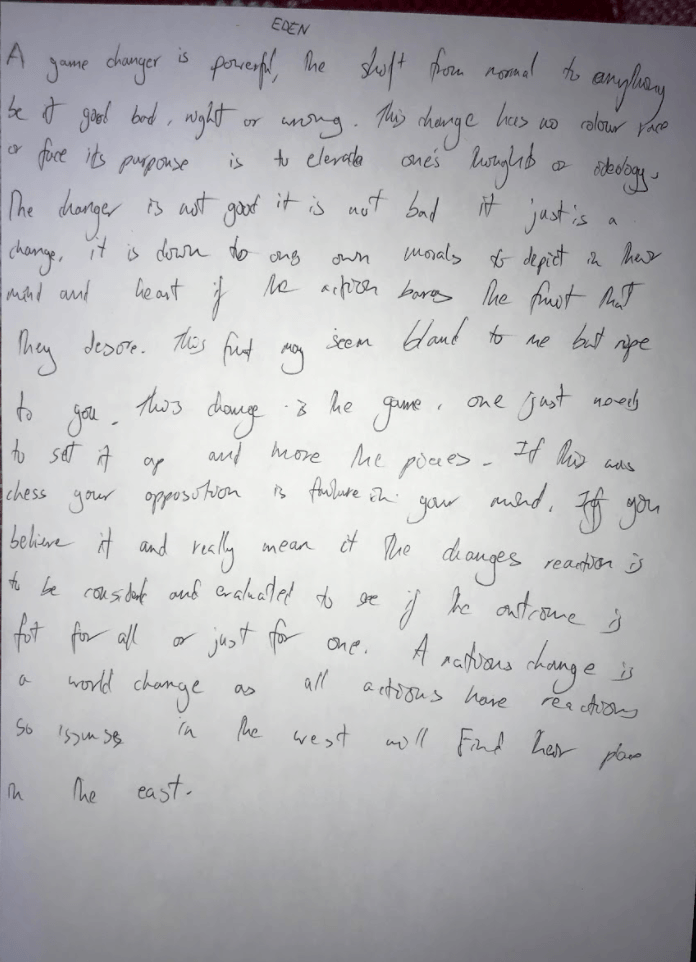 EDEN
A game changer is powerful, the shift from normal to anything
be it good bad, right or wrong. This change has no colour race
or face its purponse is to elevate one's thoughts or ideology.
The changer is not good it is not bad it just is a
change, it is down to ones own morals to depict in their
mind and heart if the action bares the fruit that
they desire. This fruit may seem bland to me but ripe
to you. This change is the game, one just needs
to set it up and move the pieces. If this was
chess your opposition is failure in your mind. If you
believe it and really mean it the changes reaction is
to be and evaluated to see if the outcome is
fit for all or just for one. A nations change is
a world change as all actions have reactions
so issues in the west will find their place
in the east.